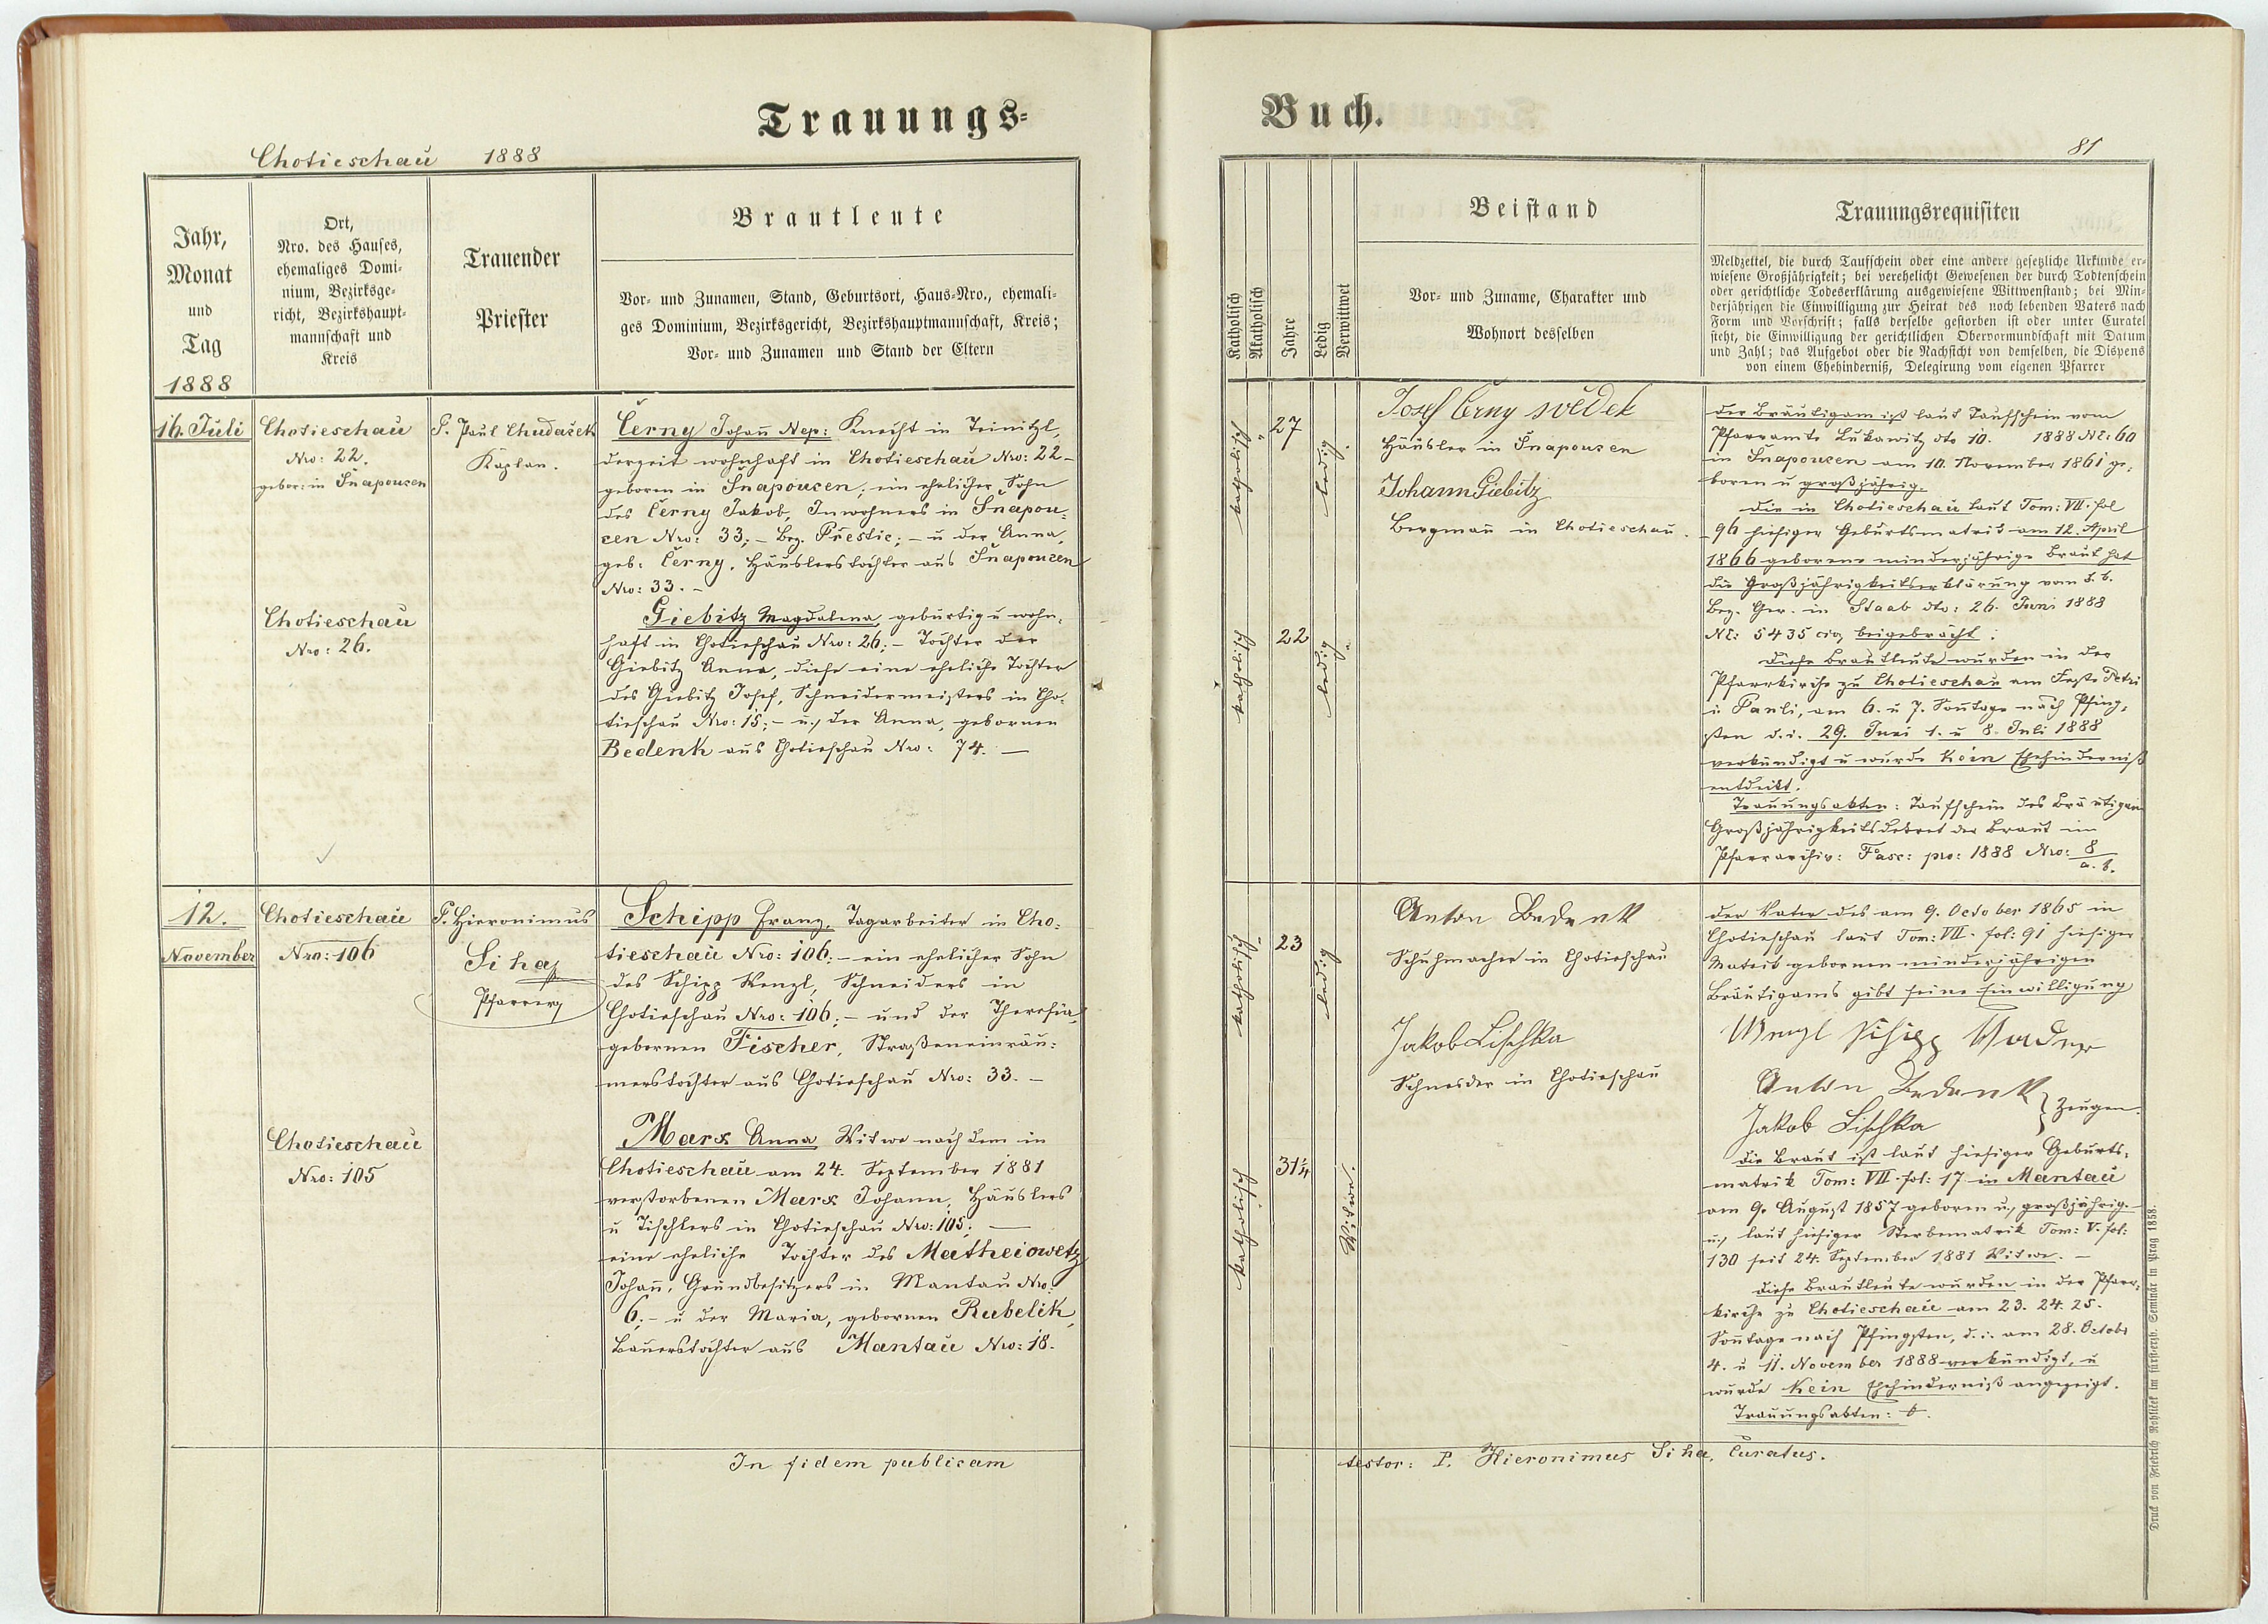 Trauungs=
Chotieschau 1888
Jahr,
Monat
und
Tag
1888
Ort,
Nro. des Hauses,
ehemaliges Domi-
nium, Bezirksge-
richt, Bezirkshaupt-
mannschaft und
Kreis
Trauender
Priester
Brautleute
Vor- und Zunamen, Stand, Geburtsort, Haus-Nro., ehemali-
ges Dominium, Bezirksgericht, Bezirkshauptmannschaft, Kreis;
Vor- und Zunamen und Stand der Eltern
16. Juli
Chotieschau
Nro: 22.
gebor: in Šnapouzen
P. Paul Chudaček
Kaplan.
Černy Johañ Nep: Knecht in Teinitzl,
derzeit wohnhaft in Chotieschau Nro: 22-
geboren in Šnapouzen; ein ehelicher Sohn
des Černy Jakob, Inwohners in Šnapou:
zen Nro: 33; - Bez. Přestic; - u der Anna,
geb: Černy, Häuslerstochter aus Šnapouzen
Nro: 33. -
Chotieschau
Nro: 26.
Giebitz Magdalena, gebürtig u wohn:
haft in Chotieschau Nro: 26; - Tochter der
Giebitz Anna, diese eine eheliche Tochter
des Giebitz Josef, Schneidermeisters in Cho:
tieschau Nro: 15; - u., der Anna, gebornen
Bedenk aus Chotieschau Nro: 74. -
12.
November
Chotieschau
Nro: 106
P. Hieronimus
Siha
Pfarrer
Schipp Franz, Tagarbeiter in Cho:
tieschau Nro: 106; - ein ehelicher Sohn
des Schipp Wenzl, Schneiders in
Chotieschau Nro: 106; - und der Theresia,
gebornen Fischer, Straßeneinräu:
merstochter aus Chotieschau Nro: 33. -
Chotieschau
Nro: 105
Marx Anna Witwe nach dem in
Chotieschau am 24. September 1881
verstorbenen Marx Johann, Häuslers
u Tischlers in Chotieschau Nro: 105; -
eine eheliche Tochter des Matheiowetz
Johañ, Grundbesitzers in Mantau Nro:
6; - u der Maria, gebornen Rubelik,
Bauerstochter aus Mantau Nro: 18.
In fidem publicam
Buch.
81
Katholisch
Akatholisch
Jahre
Ledig
Verwittwet
Beistand
Vor- und Zuname, Charakter und
Wohnort desselben
Trauungsrequisiten
Meldzettel, die durch Taufschein oder eine andere gesetzliche Urkunde er-
wiesene Großjährigkeit; bei verehelicht Gewesenen der durch Todtenschein
oder gerichtliche Todeserklärung ausgewiesene Wittwenstand; bei Min-
derjährigen die Einwilligung zur Heirat des noch lebenden Vaters nach
Form und Vorschrift; falls derselbe gestorben ist oder unter Curatel
steht, die Einwilligung der gerichtlichen Obervormundschaft mit Datum
und Zahl; das Aufgebot oder die Nachsicht von demselben, die Dispens
von einem Ehehinderniß, Delegirung vom eigenen Pfarrer
katholisch
27
ledig.
Josef Černy svědek
Häusler in Šnapouzen
Johann Giebitz
Bergmañ in Chotieschau.
katholisch
22
ledig.
der Bräutigam ist laut Taufschein vom
Pfarramte Lukawitz dto 10. 1888 NE: 60
in Šnapouzen am 10. November 1861 ge:
boren u großjährig.
die in Chotieschau laut Tom: VII. fol
96 hiesiger Geburtsmatrik am 12. April
1866 geborene minderjährige Braut hat
die Großjährigkeitserklärung vom k. k.
Bez. Ger. in Staab dto: 26. Juni 1888
NE: 5435 civ, beigebracht;
diese Brautleute wurden in der
Pfarrkirche zu Chotieschau am Feste Petri
u Pauli, am 6. u 7. Soñtage nach Pfing:
sten d. i. 29. Juni 1. u 8. Juli 1888
verkündigt u wurde kein Ehehinderniß
entdeckt.
Trauungsakten: Taufschein des Bräutigam
Großjährigkeitsdekret der Braut im
Pfarrarchiv: Fasc: pro: 1888 Nro: 8
a. b.
katholisch
23
ledig
Anton Bedenk
Schuhmacher in Chotieschau
Jakob Lischka
Schneider in Chotieschau
katholisch
31¼
Witwe.
der Vater des am 9. October 1865 in
Chotieschau laut Tom: VII. fol: 91 hiesiger
Matrik gebornen minderjährigen
Bräutigams gibt seine Einwilligung
Wenzl Schipp Vader
Anton Bedenk
Jakob Lischka
} Zeugen.
die Braut ist laut hiesiger Geburts:
matrik Tom: VII. fol: 17 in Mantau
am 9. August 1857 geboren u., großjährig. -
u., laut hiesiger Sterbematrik Tom: V. fol:
130 seit 24. September 1881 Witwe. -
diese Brautleute wurden in der Pfarr:
kirche zu Chotieschau am 23. 24. 25.
Soñtage nach Pfingsten, d. i. am 28. Octobr
4. u 11. November 1888 verkündigt, u
wurde kein Ehehinderniß angezeigt.
Trauungsakten:
testor: P. Hieronimus Siha, Curatus.
Druck von Friedrich Rohliček im fürsterzb. Seminär in Prag 1858.